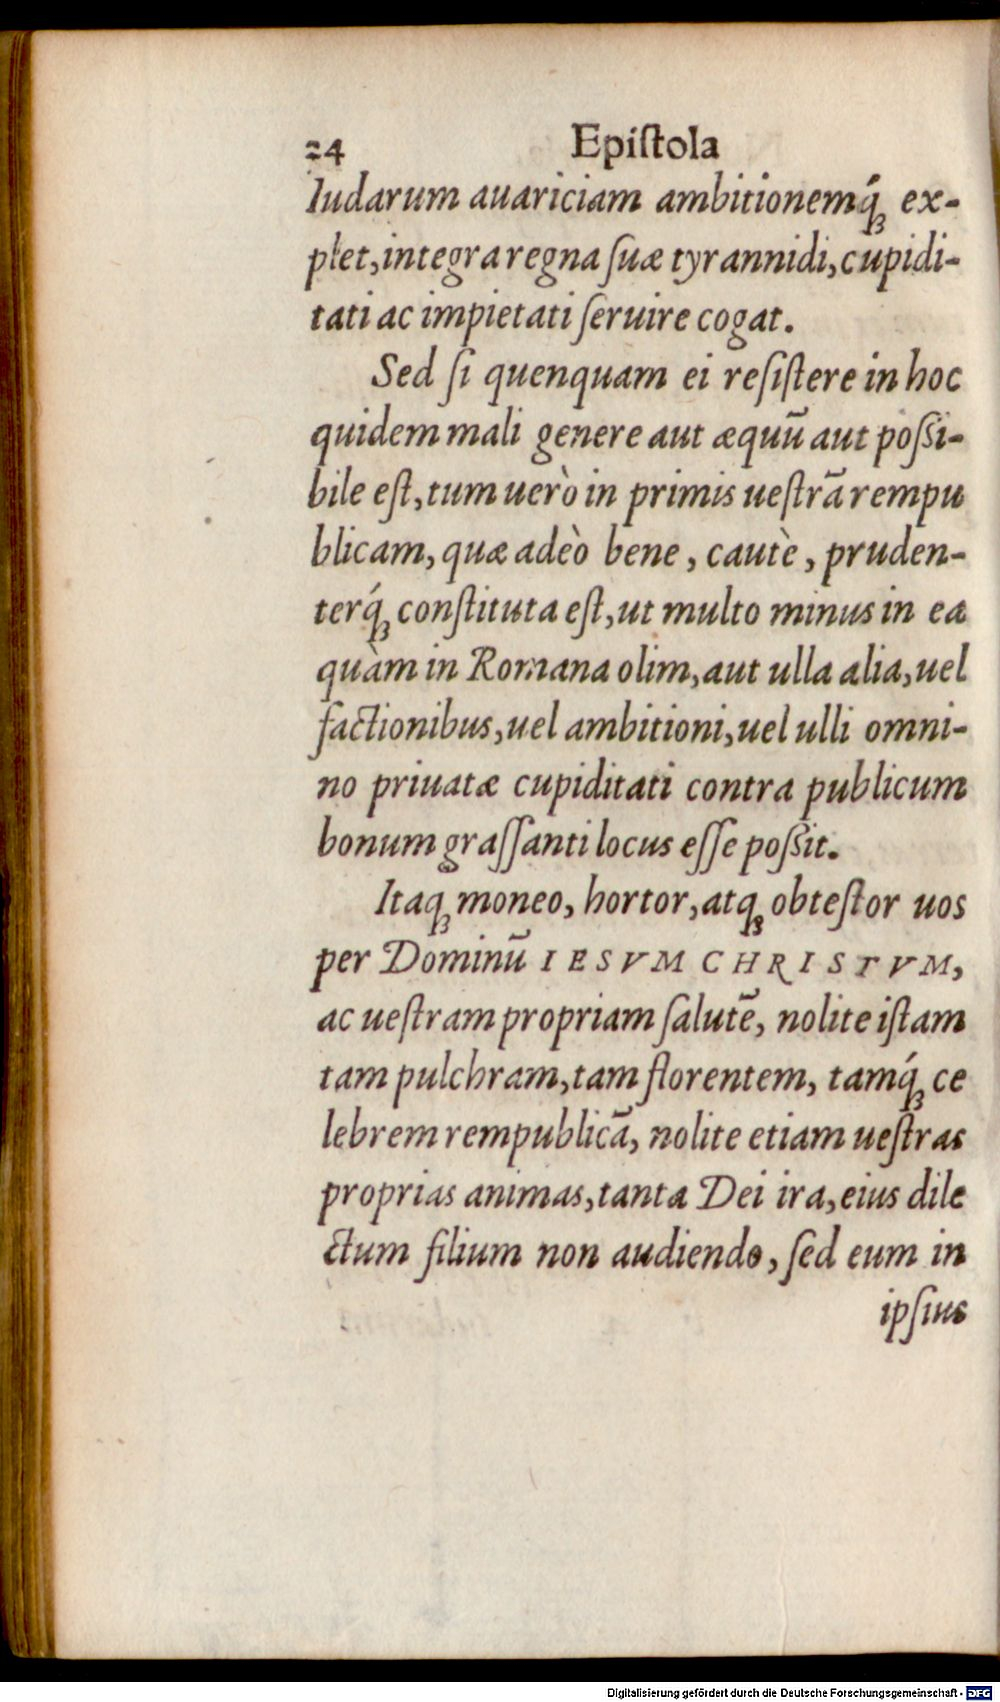 24 Epiſtola
Iudarum auariciam ambitionemq́ꝫ ex-
plet, integra regna ſuæ tyrannidi, cupidi-
tati ac impietati ſeruire cogat.
Sed ſi quenquam ei reſiſtere in hoc
quidem mali genere aut æquū aut poſſi-
bile eſt, tum uerò in primis ueſtrā rempu
blicam, quæ adeò bene, cautè, pruden-
terq́ꝫ conſtituta eſt, ut multo minus in ea
quàm in Romana olim, aut ulla alia, uel
factionibus, uel ambitioni, uel ulli omni-
no priuatæ cupiditati contra publicum
bonum graſſanti locus eſſe poſſit.
Itaqꝫ moneo, hortor, atqꝫ obteſtor uos
per Dominū IESVM CHRISTVM,
ac ueſtram propriam ſalutē, nolite iſtam
tam pulchram, tam florentem, tamq́ꝫ ce
lebrem rempublicā, nolite etiam ueſtras
proprias animas, tanta Dei ira, eius dile
ctum filium non audiendo, ſed eum in
ipſius
Digitalisierung gefördert durch die Deutsche Forschungsgemeinschaft - DFG